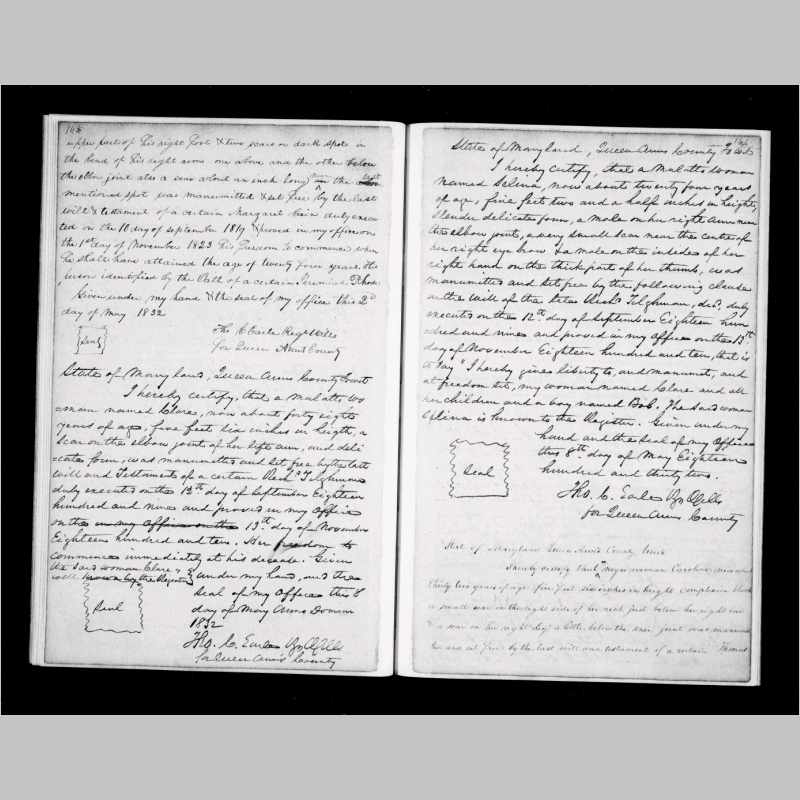 upper part of his right foot & two scars or dark spots in
the bend of his right arm one above and the other below
the elbow joint also a scar about an inch long from the last
mentioned spot was manumitted & set free by the last
will & testament of a certain Margaret duly execu
ted on the 10 day of September 1819 & proved in my office on
the 1st day of November 1823 his freedom to commence when
he shall have attained the age of twenty four years. the
person identified by the Oath of a certain Jeremiah Rhodes
Given under my hand & the seal of my office this 2d
day of May 1832
Seal
Tho C Earle Reg Wills
for Queen Ann's County
State of Maryland, Queen Anns County Court
I hereby certify, that a Malatto wo
man named Clare, now about forty eight
years of age, five feet six inches in heigth, a
scar on the elbow joint of her left arm, and deli
cate form, was manumitted and set free by the last
will and Testament of a certain Richd Tilghman
duly executed on the 12th day of September Eighteen
hundred and nine and proved in my office
on the in my office on the 13th day of November
Eighteen hundred and ten. Her freedom to
commence immediately at his decease. Given
the said woman Clare is
well known by the Register
under my hand, and the
Seal of my Office this 8
day of May Anno Domini
1832
Seal
Tho. C. Earle Rg Wills
for Queen Ann's County
State of Maryland, Queen Anns County To Wit
I hereby certify, that a Malatto woman
named Selina, now about twenty four years
of age, five feet two and a half inches in heighth,
slender delicate form, a mole on her right arm near
the elbow joint, a very small scar near the centre of
her right eye brow & a mole on the inside of her
right hand on the thick part of her thumb, was
manumitted and set free by the following clause
in the will of the late Richd Tilghman, decd, duly
executed on the 12th day of September Eighteen hun
dred and nine and proved in my office on the 13th
day of November Eighteen hundred and ten, that is
to say "I hereby give liberty to, and manumit, and
at freedom set, my woman named Clare and all
her children and a boy named Bob. The said woman
Selina is known to the Register. Given under my
hand and the seal of my Office
this 8th day of May Eighteen
hundred and thirty two.
Seal
Tho. C. Earle Rg Wills
for Queen Anns County
State of Maryland Queen Ann's County
I hereby certify that negro woman Caroline now about
thirty two years of age five feet six inches in height complexion black
a small scar in the right side of her neck just below her right ear
& a scar on her right leg a little below the knee joint was manumit
ted and set free by the last will and testament of a certain Thomas